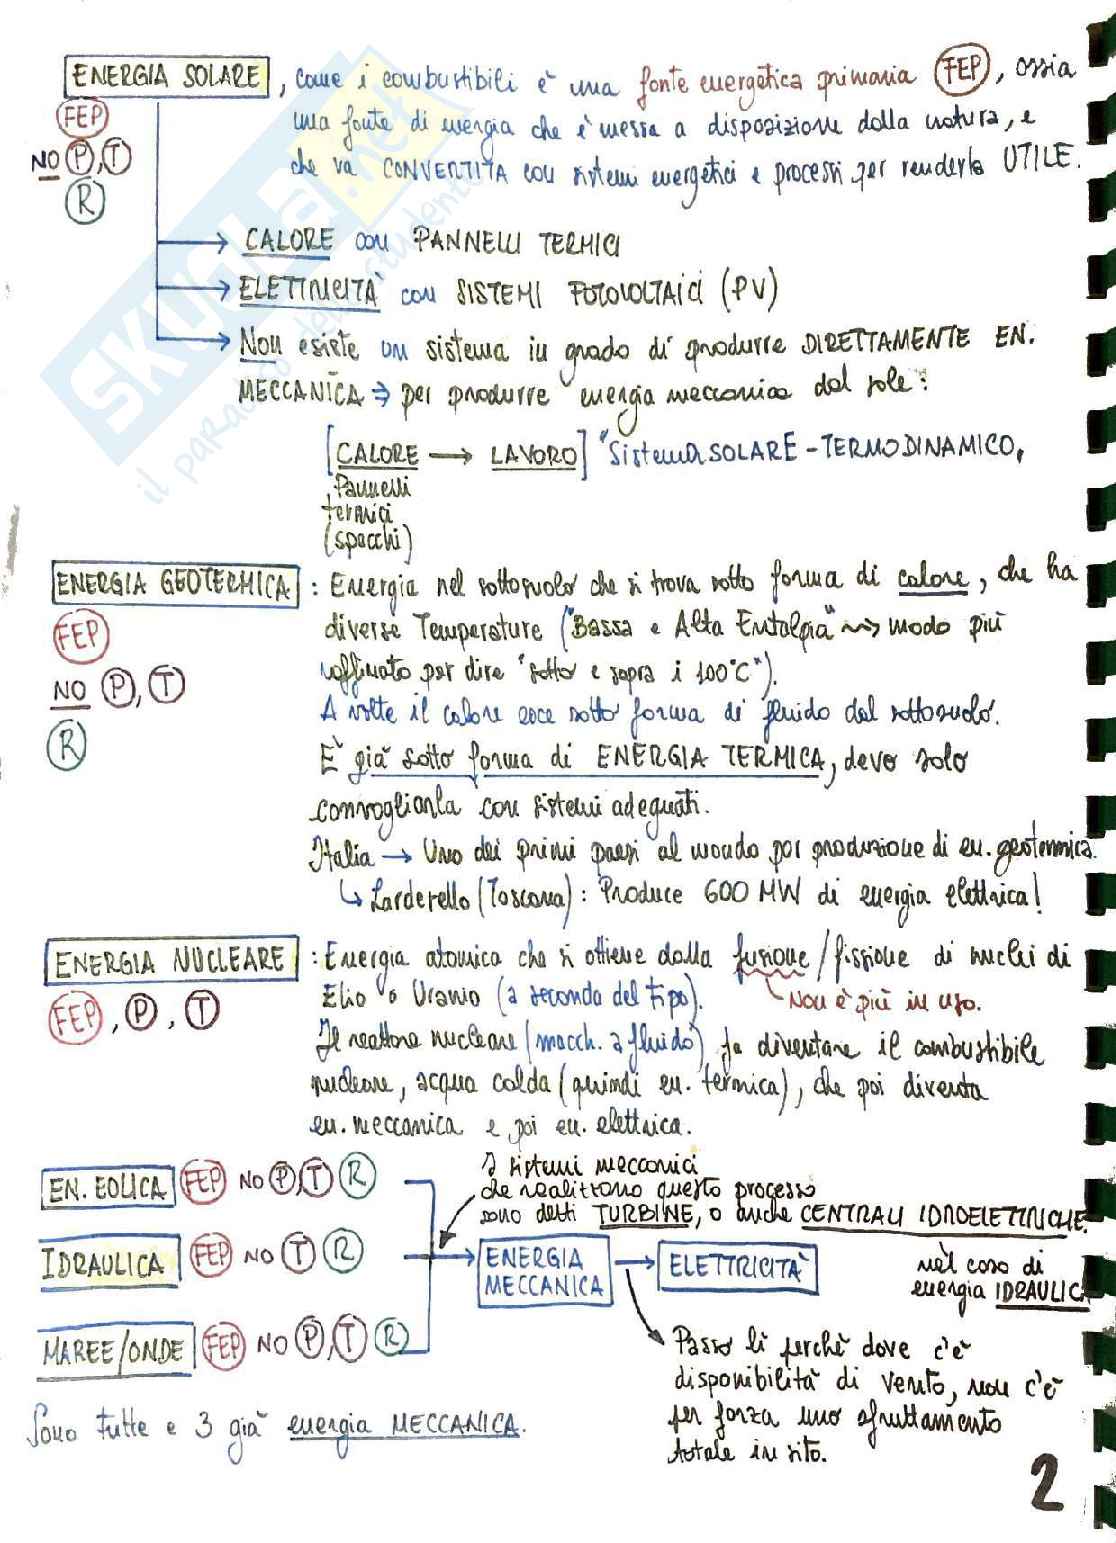 ENERGIA SOLARE, come i combustibili è una fonte energetica primaria (FEP), ossia
FEP
una fonte di energia che è messa a disposizione dalla natura, e
NO P, T
che va CONVERTITA con sistemi energetici e processi per renderla UTILE.
R
→ CALORE con PANNELLI TERMICI
→ ELETTRICITÀ con SISTEMI FOTOVOLTAICI (PV)
→ Non esiste un sistema in grado di produrre DIRETTAMENTE EN.
MECCANICA ⇒ per produrre energia meccanica dal sole:
[CALORE → LAVORO] "Sistema SOLARE-TERMODINAMICO"
Pannelli
termici
(specchi)
ENERGIA GEOTERMICA : Energia nel sottosuolo che si trova sotto forma di calore, che ha
FEP
diverse Temperature ("Bassa e Alta Entalpia" ~> modo più
NO P, T
raffinato per dire "sotto e sopra i 100°C").
R
A volte il calore esce sotto forma di fluido dal sottosuolo.
È già sotto forma di ENERGIA TERMICA, devo solo
convogliarla con sistemi adeguati.
Italia → Uno dei primi paesi al mondo per produzione di en. geotermica.
↳ Larderello (Toscana): Produce 600 MW di energia elettrica!
ENERGIA NUCLEARE : Energia atomica che si ottiene dalla fusione/fissione di nuclei di
FEP, P, T
Elio o Uranio (a seconda del tipo).
Non è più in uso.
Il reattore nucleare (macch. a fluido) fa diventare il combustibile
nucleare, acqua calda (quindi en. termica), che poi diventa
en. meccanica e poi en. elettrica.
I sistemi meccanici
che realizzano questo processo
sono detti TURBINE, o anche CENTRALI IDROELETTRICHE
nel caso di
energia IDRAULICA
EN. EOLICA FEP NO P, T R
IDRAULICA FEP NO T R
→ ENERGIA MECCANICA → ELETTRICITÀ
MAREE/ONDE FEP NO P, T R
Passo lì perchè dove c'è
disponibilità di vento, non c'è
per forza uno sfruttamento
totale in sito.
Sono tutte e 3 già energia MECCANICA.
2
SKUOLA.net
il paradiso dello studente